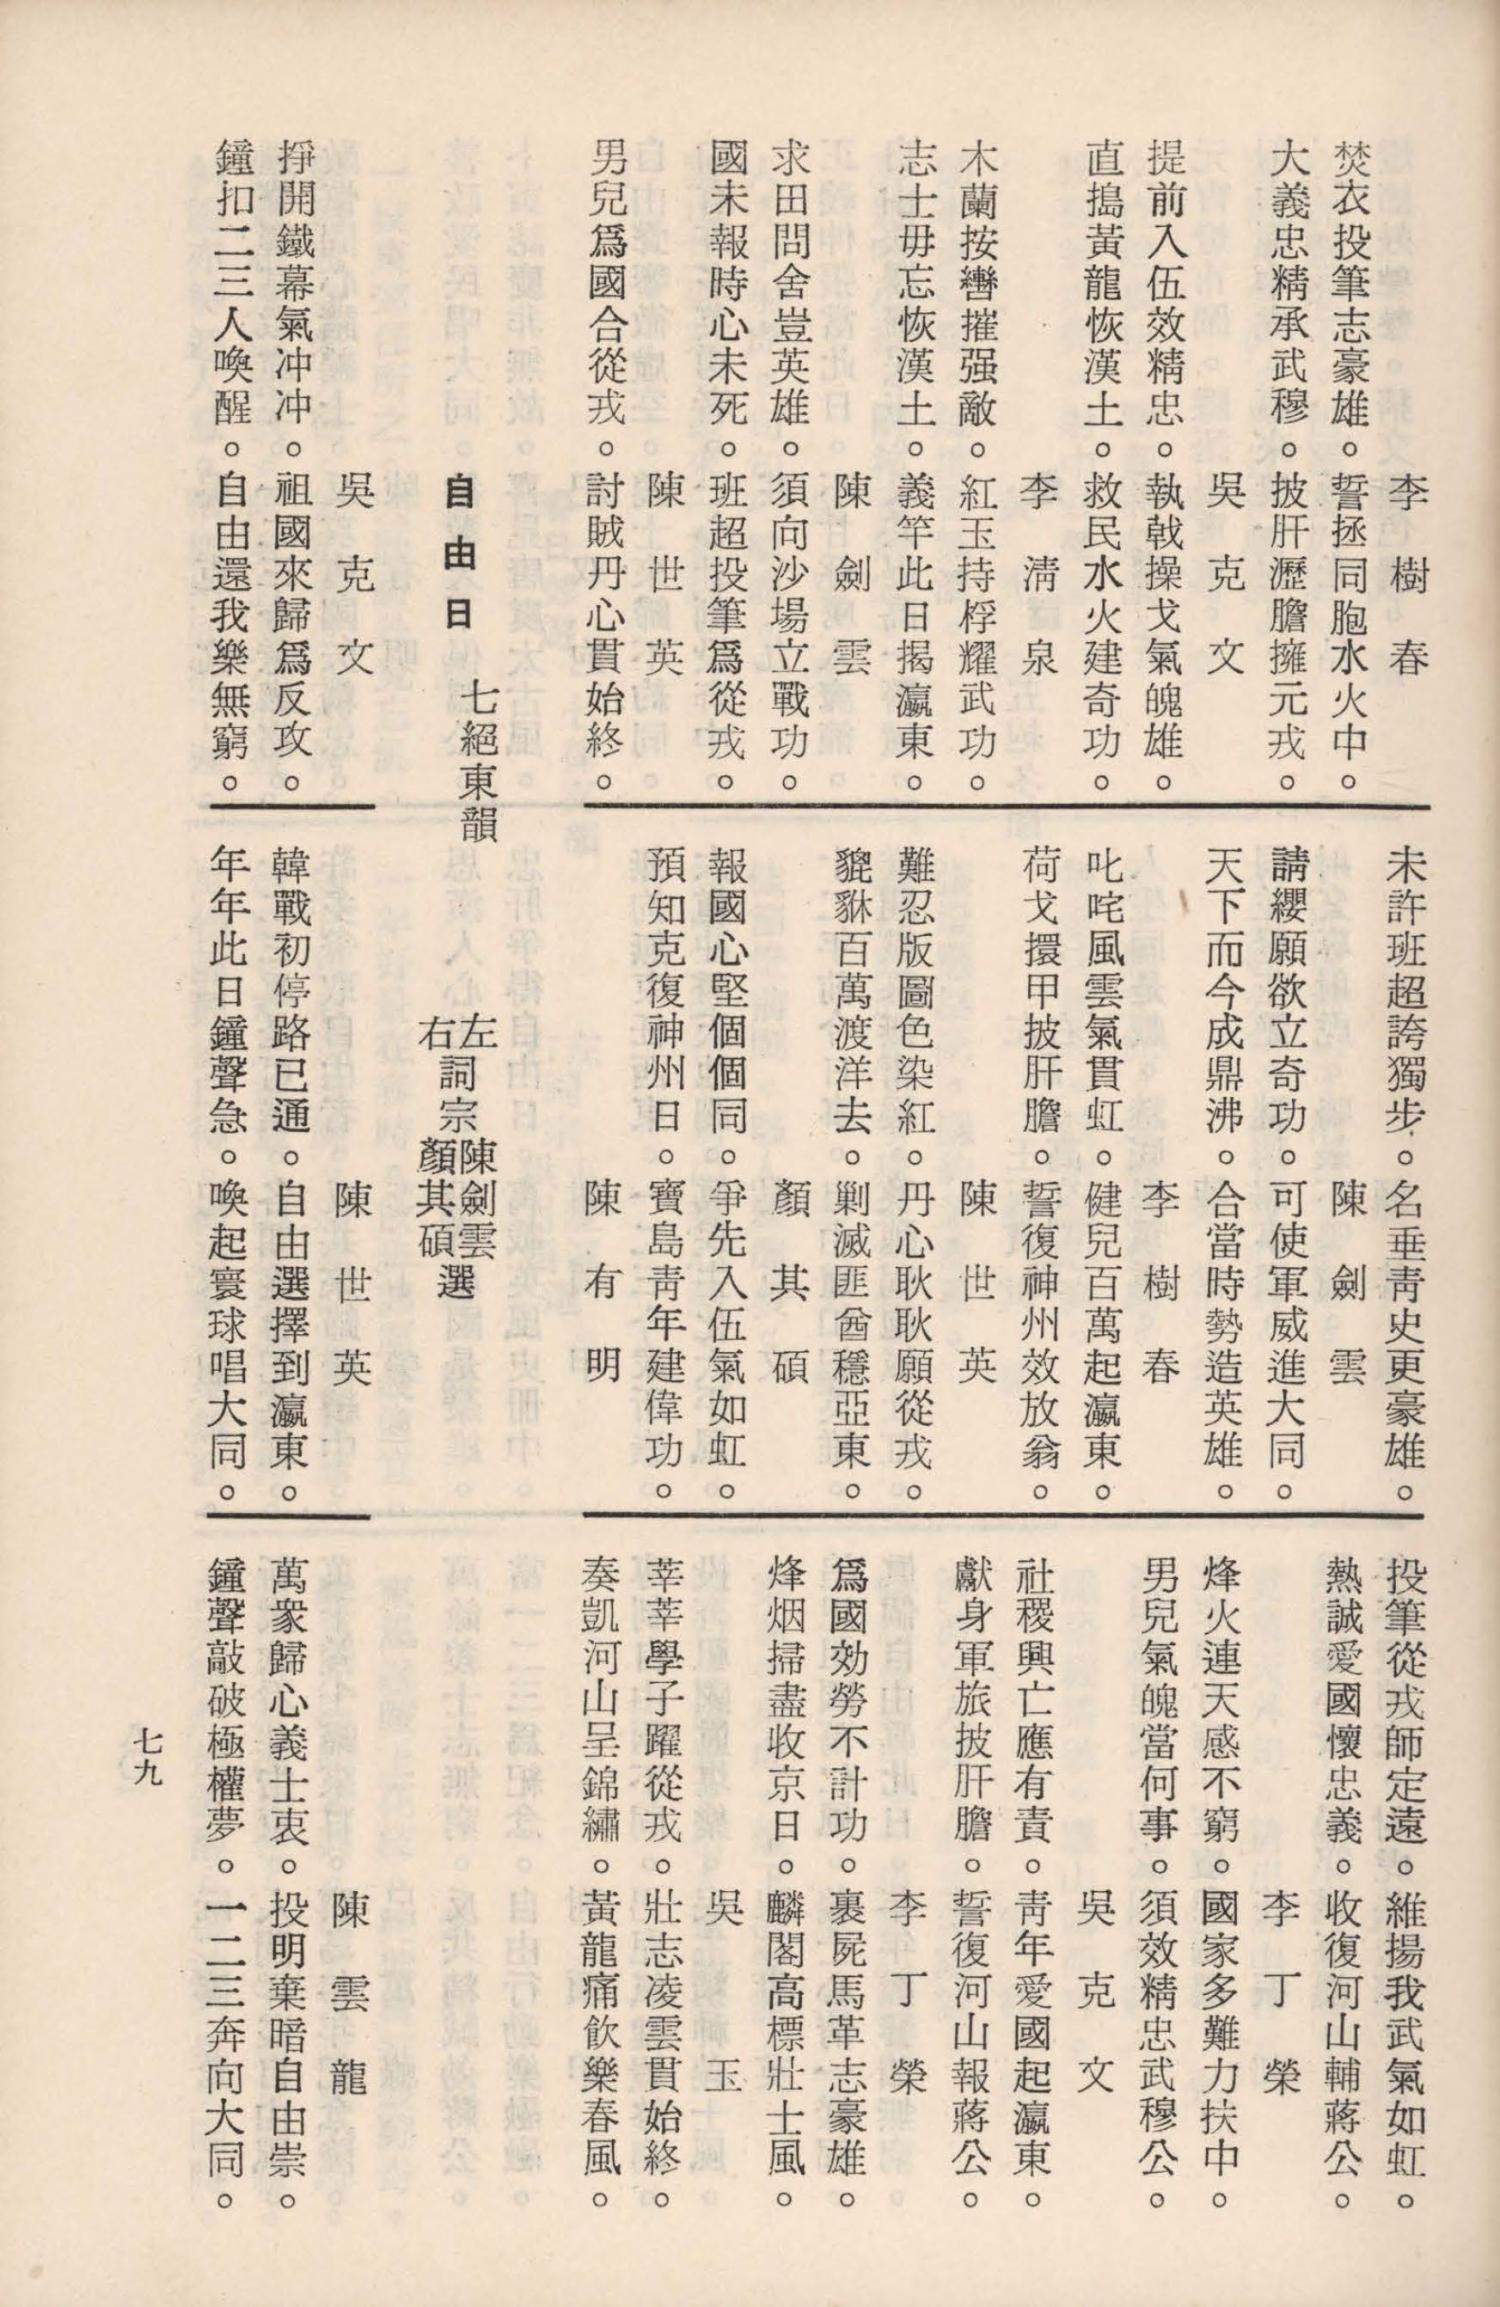 李樹春
焚衣投筆志豪雄。誓拯同胞水火中。
大義忠精承武穆。披肝瀝膽擁元戎。
吳克文
提前入伍效精忠。執戟操戈氣魄雄。
直搗黃龍恢漢土。救民水火建奇功。
李淸泉
木蘭按轡摧强敵。紅玉持桴耀武功。
志士毋忘恢漢土。義竿此日揭瀛東。
陳劍雲
求田問舍豈英雄。須向沙場立戰功。
國未報時心未死。班超投筆爲從戎。
陳世英
男兒爲國合從戎。討賊丹心貫始終。
未許班超誇獨步。名垂靑史更豪雄。
陳劍雲
請纓願欲立奇功。可使軍威進大同。
天下而今成鼎沸。合當時勢造英雄。
李樹春
叱咤風雲氣貫虹。健兒百萬起瀛東。
荷戈擐甲披肝膽。誓復神州效放翁。
陳世英
難忍版圖色染紅。丹心耿耿願從戎。
貔貅百萬渡洋去。剿滅匪酋穩亞東。
顏其碩
報國心堅個個同。爭先入伍氣如虹。
預知克復神州日。寶島靑年建偉功。
陳有明
投筆從戎師定遠。維揚我武氣如虹。
熱誠愛國懷忠義。收復河山輔蔣公。
李丁榮
烽火連天感不窮。國家多難力扶中。
男兒氣魄當何事。須效精忠武穆公。
吳克文
社稷興亡應有責。靑年愛國起瀛東。
獻身軍旅披肝膽。誓復河山報蔣公。
李丁榮
爲國効勞不計功。裹屍馬革志豪雄。
烽烟掃盡收京日。麟閣高標壯士風。
吳玉
莘莘學子躍從戎。壯志凌雲貫始終。
奏凱河山呈錦繡。黃龍痛飮樂春風。
自由日　七絕東韻
左詞宗陳劍雲選
右詞宗顏其碩選
吳克文
掙開鐵幕氣冲冲。祖國來歸爲反攻。
鐘扣二三人喚醒。自由還我樂無窮。
陳世英
韓戰初停路已通。自由選擇到瀛東。
年年此日鐘聲急。喚起寰球唱大同。
陳雲龍
萬衆歸心義士衷。投明棄暗自由崇。
鐘聲敲破極權夢。一二三奔向大同。
七九